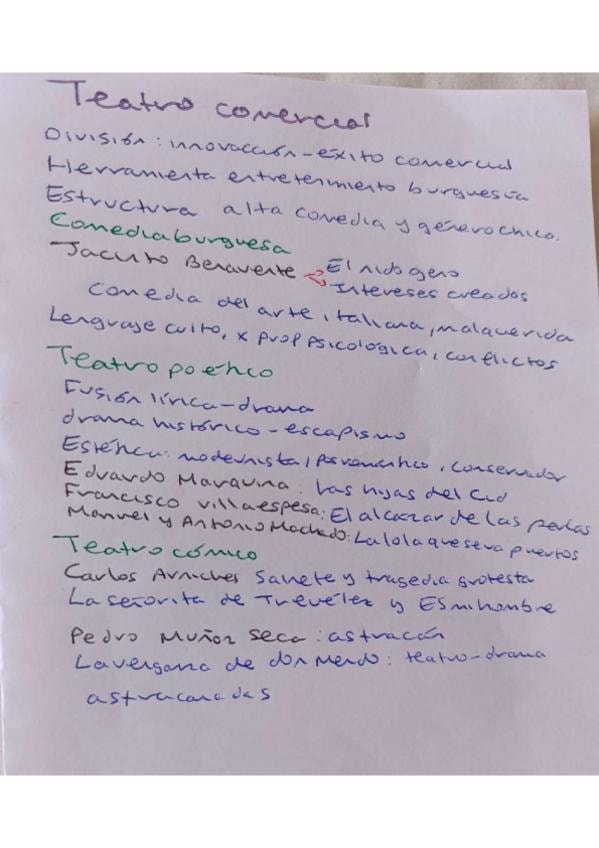 Teatro comercial
División: innovacción-éxito comercial
Herramienta entretenimiento burguesía
Estructura alta comedia y género chico.
Comedia burguesa
Jacinto Benavente El nido ageno
Intereses creados
Comedia del arte italiana, malquerida
Lenguaje culto, x prof psicológica, conflictos
Teatro poético
Fusión lírica-drama
drama histórico-escapismo
Estética: modernista, posromántico, conservador
Eduardo Marquina: Las hijas del Cid
Francisco Villaespesa: El alcázar de las perlas
Manuel y Antonio Machado: La lola que se va puertos
Teatro cómico
Carlos Arniches Sainete y tragedia grotesta
La señorita de Trevélez y Es mi hombre
Pedro Muñoz Seca: astracán
La venganza de don Mendo: teatro-drama
astracanadas